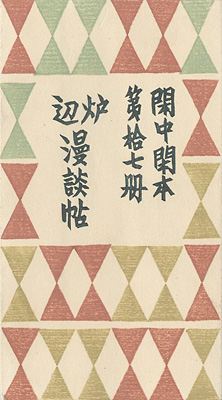 閑中閑本
第拾七册
炉辺漫談帖